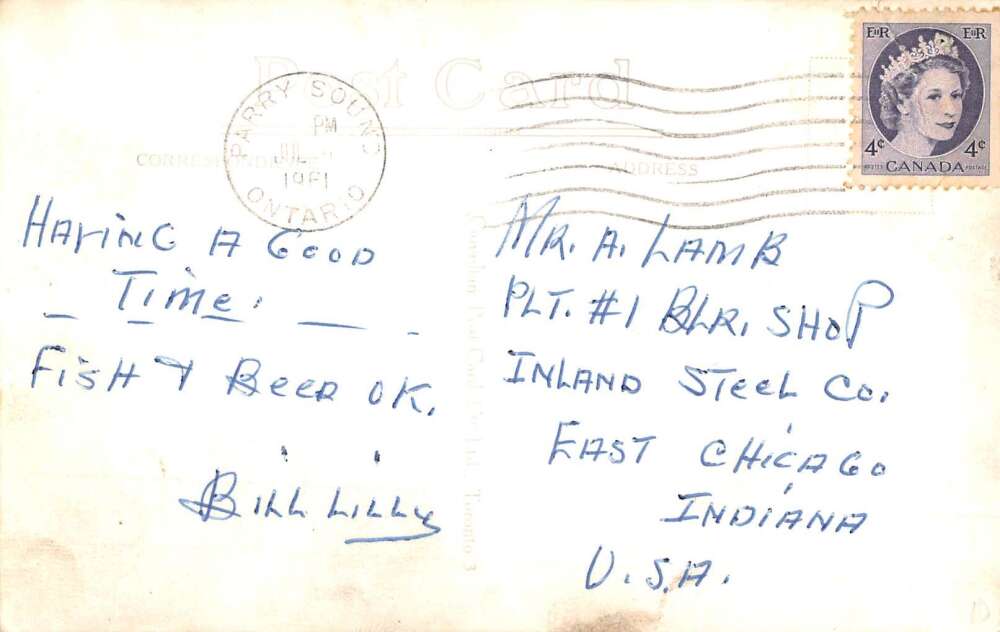 Post Card
CORRESPONDENCE
ADDRESS
PARRY SOUND
PM
JUL
1961
ONTARIO
EIIR EIIR
4¢ 4¢
POSTES CANADA POSTAGE
HAVING A GOOD
TIME.
FISH & BEER OK.
BILL LILLY
MR. A. LAMB
PLT. #1 BLR. SHOP
INLAND STEEL CO.
EAST CHICAGO
INDIANA
U.S.A.
Toronto 3